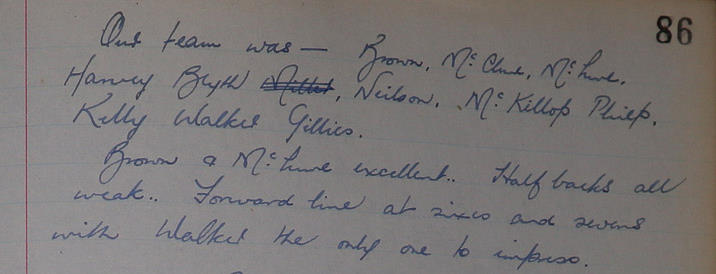 86
Our team was — Brown, McClure, McLure,
Harvey Blyth Miller, Neilson, McKillop Philp,
Kelly Walker Gillies.
Brown & McLure excellent.. Half backs all
weak.. Forward line at sixes and sevens
with Walker the only one to impress.